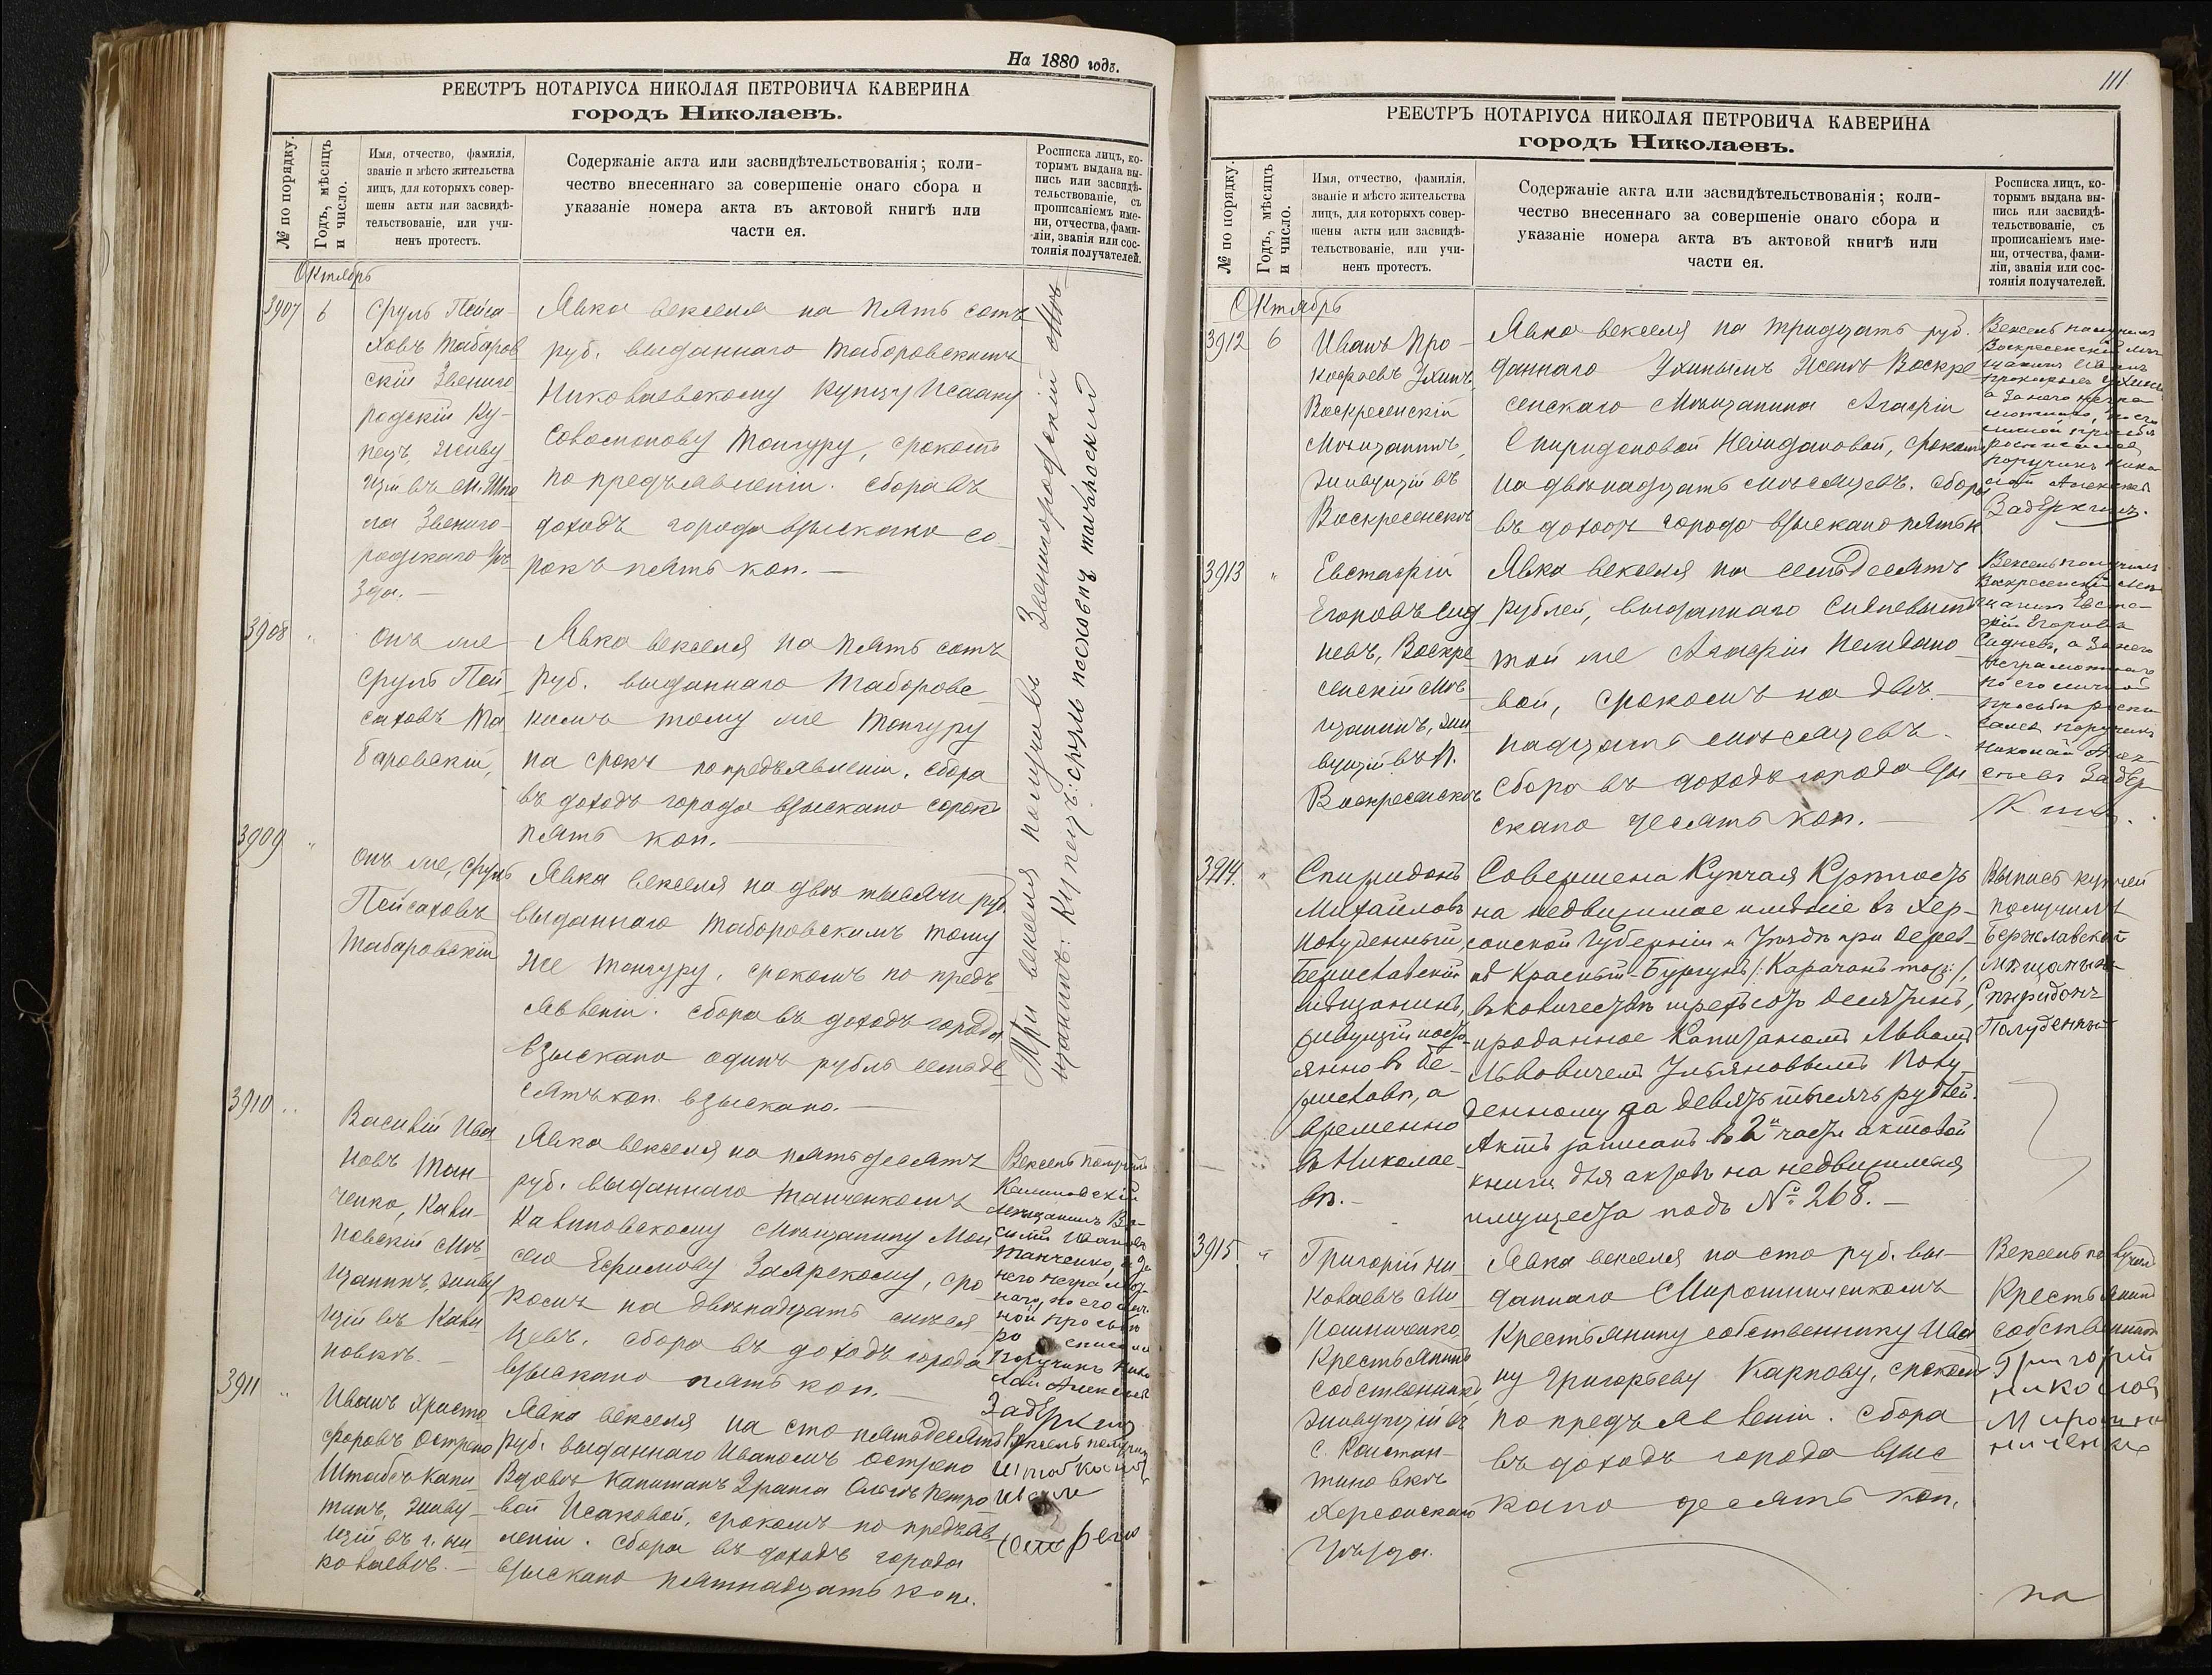 На 1880 годъ.
РЕЕСТРЪ НОТАРІУСА НИКОЛАЯ ПЕТРОВИЧА КАВЕРИНА
городъ Николаевъ.
№ по порядку.
Годъ, мѣсяцъ
и число.
Имя, отчество, фамилія,
званіе и мѣсто жительства
лицъ, для которыхъ совер-
шены акты или засвидѣ-
тельствованіе, или учи-
ненъ протестъ.
Содержаніе акта или засвидѣтельствованія; коли-
чество внесеннаго за совершеніе онаго сбора и
указаніе номера акта въ актовой книгѣ или
части ея.
Росписка лицъ, ко-
торымъ выдана вы-
пись или засвидѣ-
тельствованіе, съ
прописаніемъ име-
ни, отчества, фами-
ліи, званія или сос-
тоянія получателей.
Октябрь
3907
6
Сруль Пейса-
ховъ Табаров
скій Звениго
родскій Ку-
пецъ, живу
щій въ м. Шпо
ла Звениго-
родскаго уѣ
зда. —
Явка векселя на пять сотъ
руб. выданнаго Таборовскимъ
Николаевскому купцу Исааку
Соломонову Тонгуру, срокомъ
по предъявленіи. Сбора въ
доходъ города взыскано со-
рокъ пять коп. —
3908
"
Онъ же
Сруль Пей
саховъ Та
баровскій,
Явка векселя на пять сотъ
руб. выданнаго Таборовс
кимъ тому же Тонгуру
на срокъ по предъявленіи. Сбора
въ доходъ города взыскано сорокъ
пять коп. —
3909
"
Онъ же, Сруль
Пейсаховъ
Табаровскій
Явка векселя на двѣ тысячи руб.
выданнаго Таборовскимъ тому
же Тонгуру, срокомъ по предъ
явленіи. Сбора въ доходъ города
взыскано одинъ рубль семьде
сятъ коп. взыскано. —
При векселя получилъ Звенигородскій Мѣ-
щанинъ: Купецъ: Сруль пасховичъ таборовский
3910
"
Василій Ива
новъ Тан-
ченко, Кали-
новскій Мѣ-
щанинъ, живу
щій въ Кали
новкѣ. —
Явка векселя на пятьдесятъ
руб. выданнаго Танченкомъ
Калиновскому Мѣщанину Мои
сею Ефимову Заярскому, сро
комъ на двѣнадцать мѣся
цевъ. Сбора въ доходъ города
взыскано пять коп. —
Вексель получилъ
Калиновскій
Мѣщанинъ Ва-
силій Ивановъ
Танченко, а за
него неграмот-
наго, по его лич-
ной просьбѣ
росписался
Поручикъ Нико
лай Алексеевъ
Задёркинъ
3911
"
Иванъ Христо
форовъ Острено
Штабсъ Капи-
танъ, живу-
щій въ г. Ни-
колаевѣ. —
Явка векселя на сто пятьдесятъ
руб. выданнаго Иваномъ Острено
Вдовѣ Капитанъ 2 ранга Ольгѣ Петро
вой Исаковой, срокомъ по предъяв
леніи. Сбора въ доходъ города
взыскано пятнадцать коп.
Вексель получилъ
111
РЕЕСТРЪ НОТАРІУСА НИКОЛАЯ ПЕТРОВИЧА КАВЕРИНА
городъ Николаевъ.
№ по порядку.
Годъ, мѣсяцъ
и число.
Имя, отчество, фамилія,
званіе и мѣсто жительства
лицъ, для которыхъ совер-
шены акты или засвидѣ-
тельствованіе, или учи-
ненъ протестъ.
Содержаніе акта или засвидѣтельствованія; коли-
чество внесеннаго за совершеніе онаго сбора и
указаніе номера акта въ актовой книгѣ или
части ея.
Росписка лицъ, ко-
торымъ выдана вы-
пись или засвидѣ-
тельствованіе, съ
прописаніемъ име-
ни, отчества, фами-
ліи, званія или сос-
тоянія получателей.
Октябрь
3912
6
Иванъ Про-
кофьевъ Ухинъ,
Воскресенскій
Мѣщанинъ,
живущій въ
Воскресенскѣ
Явка векселя на тридцать руб.
даннаго Ухинымъ женѣ Воскре
сенскаго Мѣщанина Агафіи
Спиридоновой Неждановой, срокомъ
на двѣнадцать мѣсяцевъ. Сбора
въ доходъ города взыскано пять к
Вексель получилъ
Воскресенскій мѣ
щанинъ Иванъ
Прокофьевъ Ухинъ
а за него негра
мотнаго, по его
личной просьбѣ
росписался
поручикъ Нико
лай Алексеевъ
Задёркинъ.
3913
"
Евстафій
Егоровъ Сид
невъ, Воскре
сенскій Мѣ
щанинъ, жи
вущій въ п.
Воскресенскѣ
Явка векселя на семьдесятъ
рублей, выданнаго Сидневымъ
той же Агафіи Неждано
вой, срокомъ на двѣ-
надцать мѣсяцевъ.
Сбора въ доходъ города взы
скано десять коп. —
Вексель получилъ
Воскресенскій Мѣ
щанинъ Евста-
фій Егоровъ
Сидневъ, а за него
неграмотнаго
по его личной
просьбѣ роспи
сался поручикъ
Николай Алек-
сеевъ Задёр-
кинъ.
3914.
"
Спиридонъ
Михайловъ
Полуденный,
Бериславскій
мѣщанинъ,
живущій посто-
янно въ Бе-
риславѣ, а
временно
въ Николае-
вѣ. —
Совершена Купчая Крѣпость
на недвижимое имѣніе въ Хер-
сонской Губерніи и Уѣздѣ при дерев-
нѣ Красный-Бургунъ /: Карачанъ тожъ :/,
въ количествѣ трехъ сотъ десятинъ,
проданное Капитаномъ Львомъ
Львовичемъ Ульяновымъ Полу-
денному за девять тысячъ рублей.
Актъ записанъ во 2й части актовой
книги для актовъ на недвижимыя
имущества подъ № 268. —
Выпись купчей
получилъ
Бериславской
мѣщанинъ
Спиридонъ
Полуденный
3915.
"
Григорій Ни
колаевъ Ми
рошниченко
Крестьянинъ
собственникъ
живущій въ
с. Констан-
тиновкѣ
Херсонскаго
уѣзда.
Явка векселя на сто руб. вы-
даннаго Мирошниченкомъ
Крестьянину собственнику Ива
ну Григорьеву Карпову, срокомъ
по предъявленіи. Сбора
въ доходъ города взыс
кано десять коп.
Вексель получилъ
Крестьянинъ
собственникъ
Григорий
николаев
Мирошни
ниченко
на